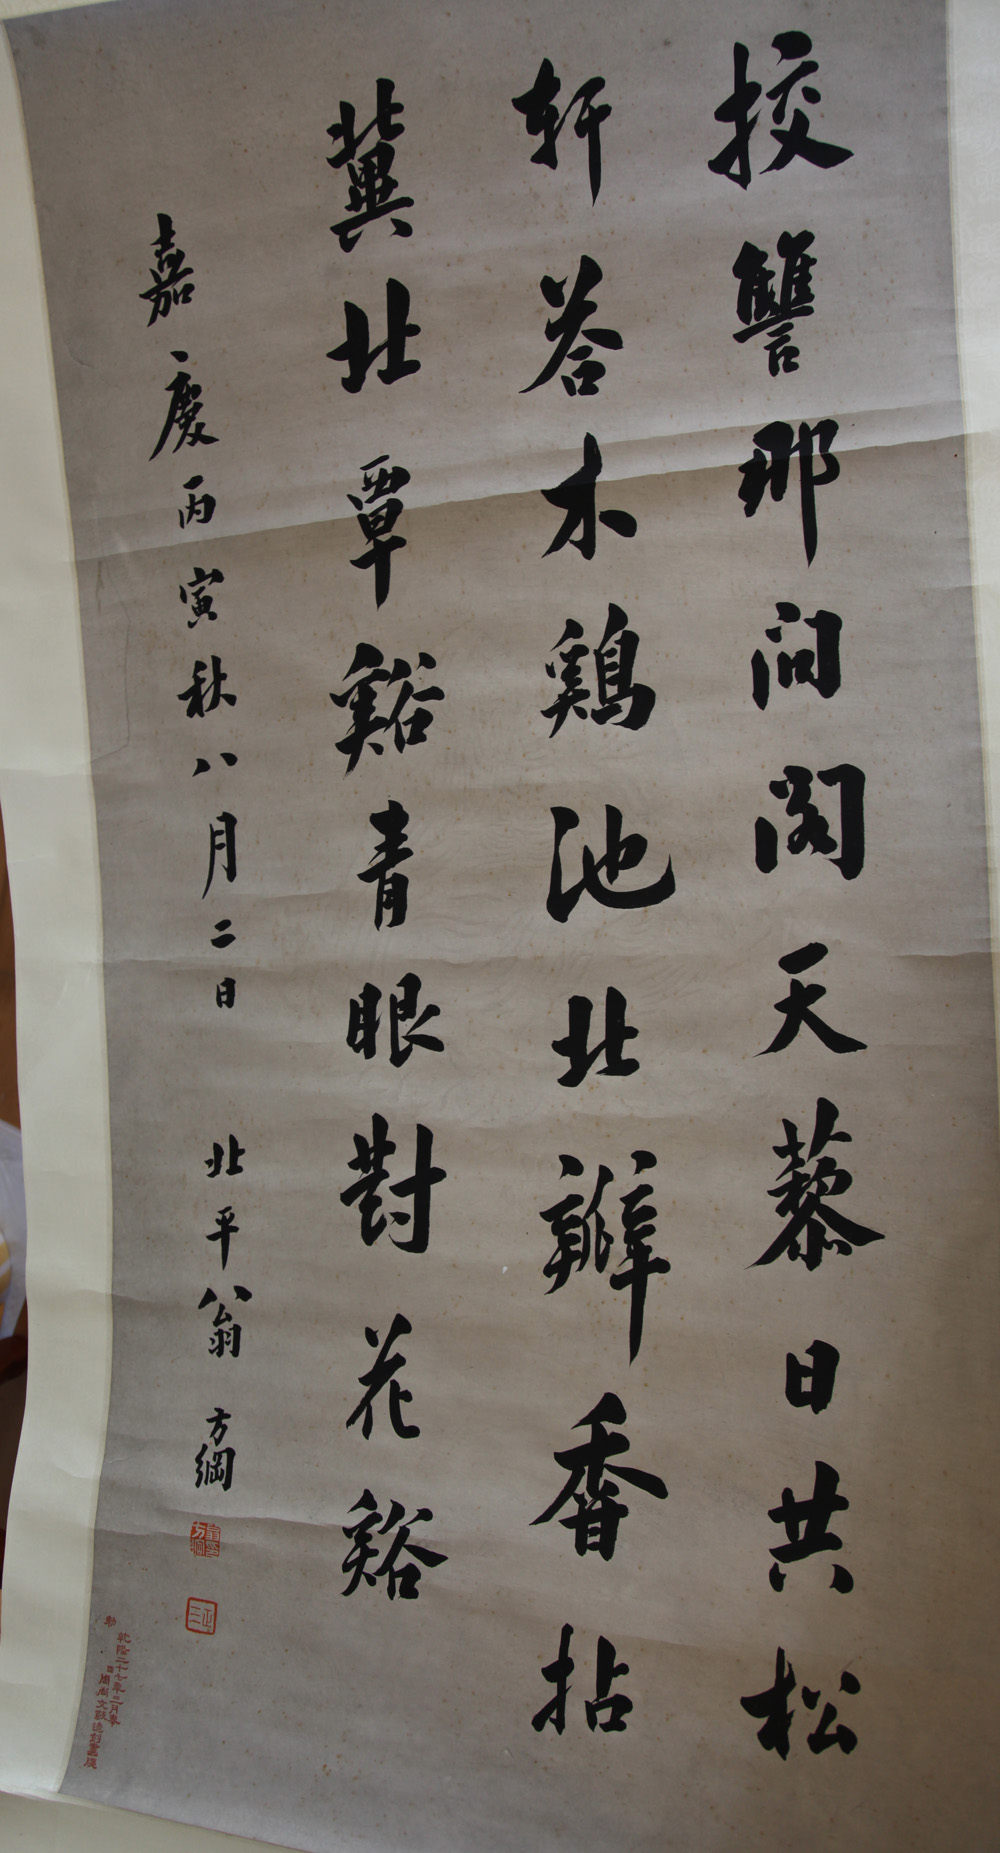 挍讐那問閣天藜日共松
軒荅木鷄池北辦香拈
冀北覃谿青眼對花谿
嘉慶丙寅秋八月二日 北平翁方綱